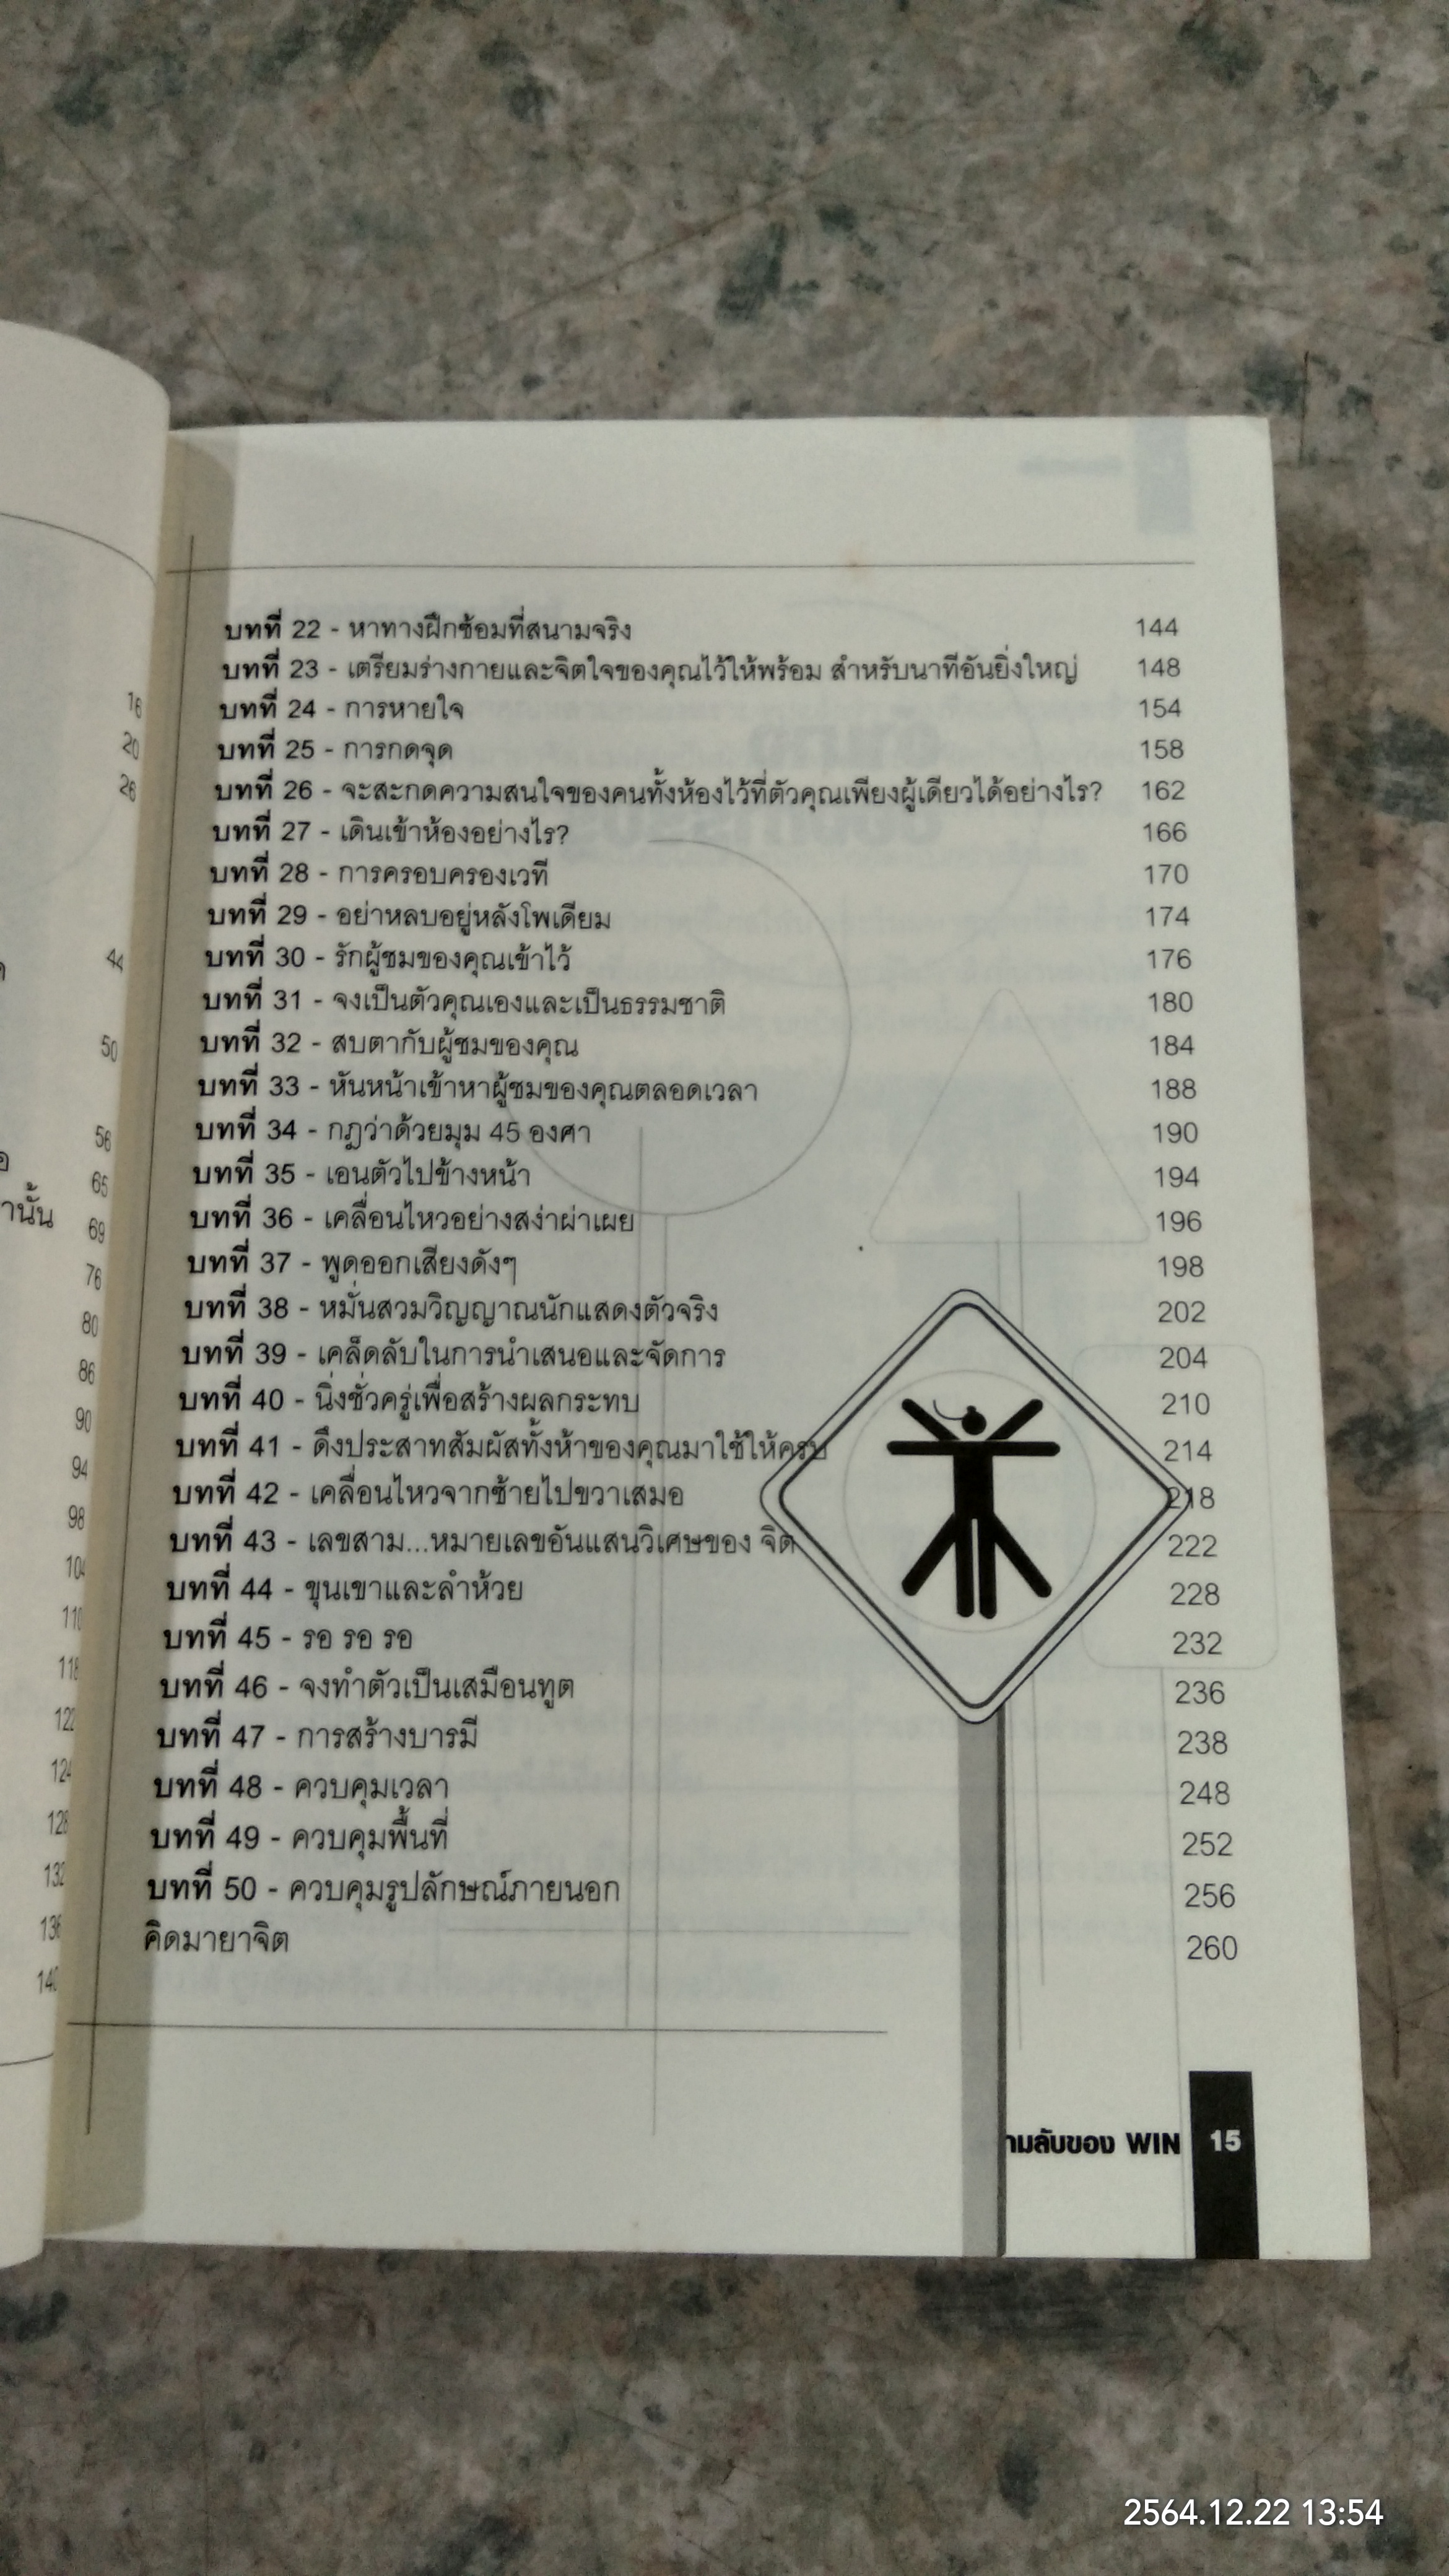 16
20
26
44
50
56
65
านั้น
69
76
80
86
90
94
98
104
110
118
122
124
128
132
136
140
บทที่ 22 - หาทางฝึกซ้อมที่สนามจริง 144
บทที่ 23 - เตรียมร่างกายและจิตใจของคุณไว้ให้พร้อม สำหรับนาทีอันยิ่งใหญ่ 148
บทที่ 24 - การหายใจ 154
บทที่ 25 - การกดจุด 158
บทที่ 26 - จะสะกดความสนใจของคนทั้งห้องไว้ที่ตัวคุณเพียงผู้เดียวได้อย่างไร? 162
บทที่ 27 - เดินเข้าห้องอย่างไร? 166
บทที่ 28 - การครอบครองเวที 170
บทที่ 29 - อย่าหลบอยู่หลังโพเดียม 174
บทที่ 30 - รักผู้ชมของคุณเข้าไว้ 176
บทที่ 31 - จงเป็นตัวคุณเองและเป็นธรรมชาติ 180
บทที่ 32 - สบตากับผู้ชมของคุณ 184
บทที่ 33 - หันหน้าเข้าหาผู้ชมของคุณตลอดเวลา 188
บทที่ 34 - กฎว่าด้วยมุม 45 องศา 190
บทที่ 35 - เอนตัวไปข้างหน้า 194
บทที่ 36 - เคลื่อนไหวอย่างสง่าผ่าเผย 196
บทที่ 37 - พูดออกเสียงดังๆ 198
บทที่ 38 - หมั่นสวมวิญญาณนักแสดงตัวจริง 202
บทที่ 39 - เคล็ดลับในการนำเสนอและจัดการ 204
บทที่ 40 - นิ่งชั่วครู่เพื่อสร้างผลกระทบ 210
บทที่ 41 - ดึงประสาทสัมผัสทั้งห้าของคุณมาใช้ให้ครบ 214
บทที่ 42 - เคลื่อนไหวจากซ้ายไปขวาเสมอ 218
บทที่ 43 - เลขสาม...หมายเลขอันแสนวิเศษของ จิต 222
บทที่ 44 - ขุนเขาและลำห้วย 228
บทที่ 45 - รอ รอ รอ 232
บทที่ 46 - จงทำตัวเป็นเสมือนทูต 236
บทที่ 47 - การสร้างบารมี 238
บทที่ 48 - ควบคุมเวลา 248
บทที่ 49 - ควบคุมพื้นที่ 252
บทที่ 50 - ควบคุมรูปลักษณ์ภายนอก 256
คิดมายาจิต 260
ามลับของ WIN 15
2564.12.22 13:54